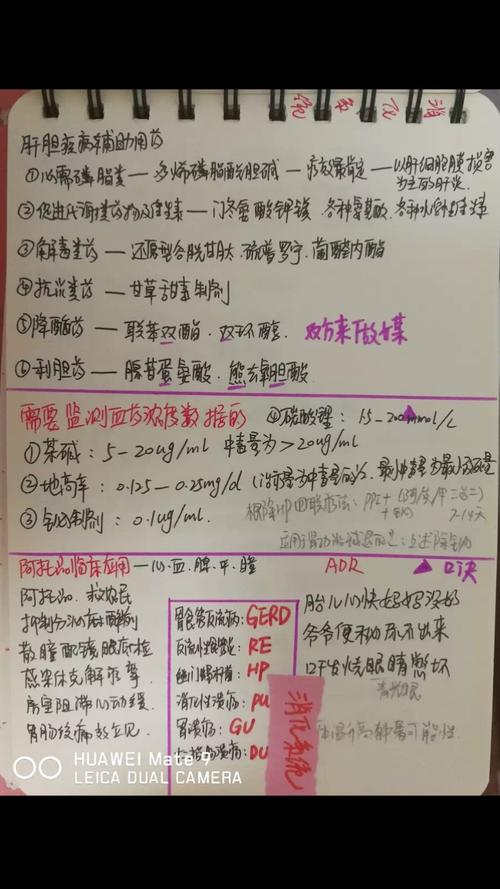 消化系统
肝胆疾病辅助用药
①必需磷脂类——多烯磷脂酰胆碱——疗效最肯定——以肝细胞膜损害
为主的肝炎
②促进代谢类药物及维生素——门冬氨酸钾镁 各种氨基酸、各种水溶性维生素
③解毒类药——还原型谷胱甘肽、硫普罗宁、葡醛内酯
④抗炎类药——甘草甜素制剂
⑤降酶药——联苯双酯、双环醇、双方来降酶
⑥利胆药——腺苷蛋氨酸、熊去氧胆酸
需要监测血药浓度数据的 ④碳酸锂：15-200mmol/L
①茶碱：5-20ug/ml 中毒量为>20ug/ml
②地高辛：0.125-0.25mg/d
③铋制剂：0.1ug/ml
根除HP四联疗法：PPI+
+铋剂 7-14天
阿托品临床应用——心.血.腺.平.瞳 ADR ▲口诀
阿托品 救农民
抑制分泌麻醉前
散瞳配镜眼底检
感染休克解痉挛
房室阻滞心动缓
胃肠绞痛效立见
胃食管反流病：GERD
反流性食管炎：RE
幽门螺杆菌：HP
消化性溃疡：PU
胃溃疡：GU
十二指肠溃疡：DU
消化系统
胎儿心快妈妈没奶
爷爷便秘尿不出来
口干发烧眼睛憋坏
青光眼
体温升高静暑可能性
HUAWEI Mate 9
LEICA DUAL CAMERA